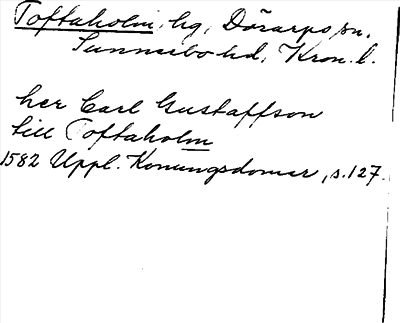 Toftaholm, hg, Dörarps sn,
Sunnerbo hd, Kron. l.
her Carl Gustaffson
till Toftaholm
1582 Uppl. Konungsdomar, s. 127.